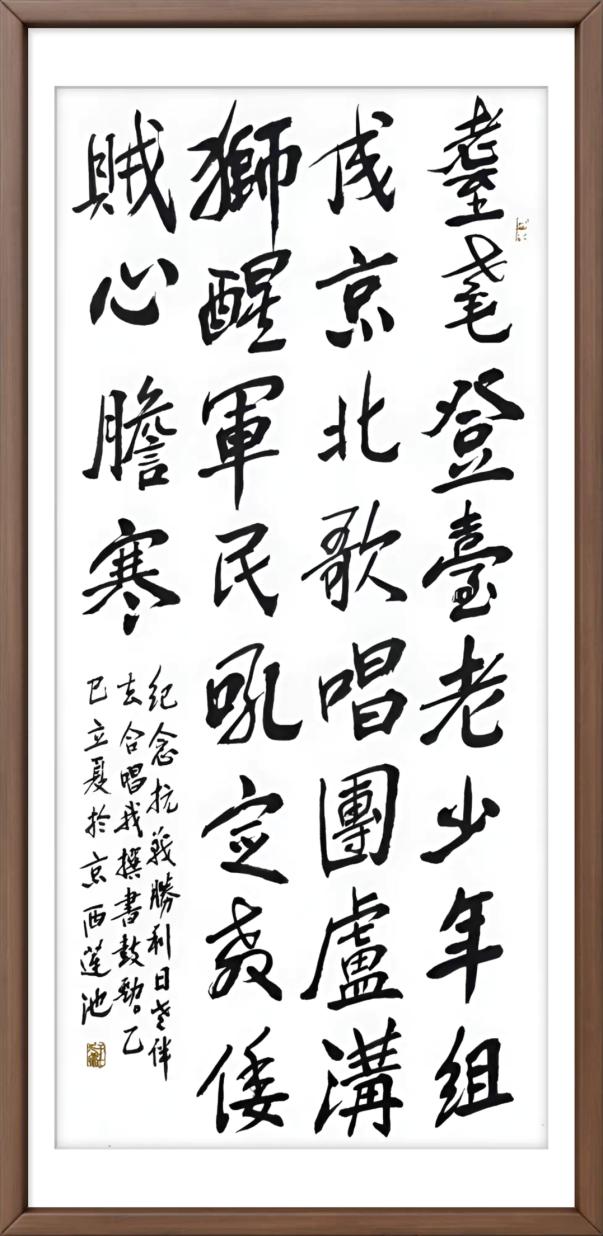 耋耄登臺老少年組
成京北歌唱團盧溝
獅醒軍民吼定教倭
賊心膽寒
紀念抗戰勝利日老伴
去合唱我撰書鼓勁乙
巳立夏於京西蓮池